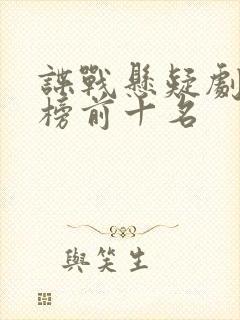 諜戰懸疑劇
榜前十名
與笑生